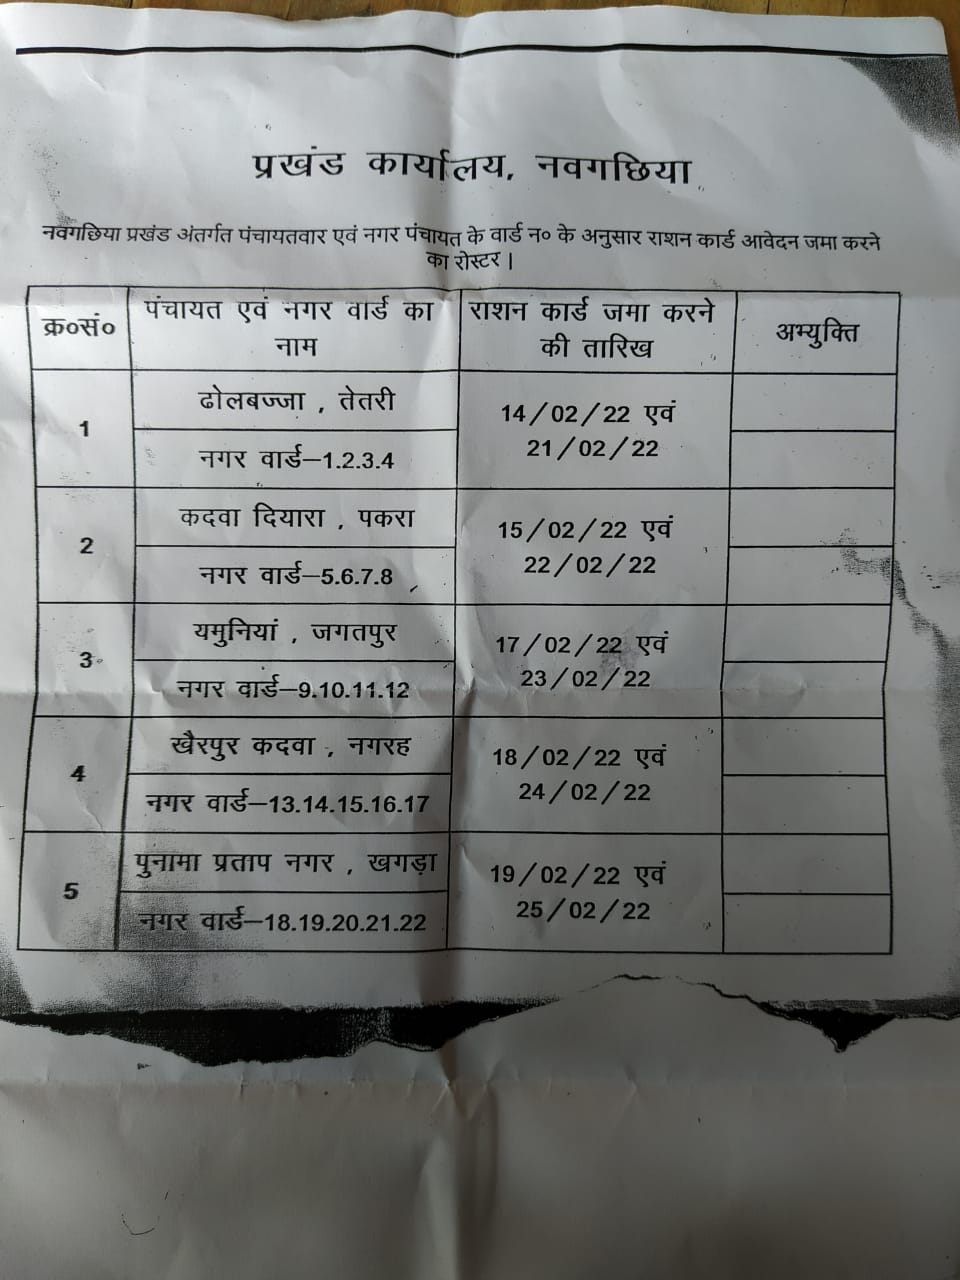 प्रखंड कार्यालय, नवगछिया
नवगछिया प्रखंड अंतर्गत पंचायतवार एवं नगर पंचायत के वार्ड न० के अनुसार राशन कार्ड आवेदन जमा करने
का रोस्टर |
क्र०सं०
पंचायत एवं नगर वार्ड का
नाम
राशन कार्ड जमा करने
की तारिख
अम्युक्ति
1
ढोलबज्जा , तेतरी
नगर वार्ड–1.2.3.4
14/02/22 एवं
21/02/22
2
कदवा दियारा , पकरा
नगर वार्ड–5.6.7.8
15/02/22 एवं
22/02/22
3
यमुनियां , जगतपुर
नगर वार्ड–9.10.11.12
17/02/22 एवं
23/02/22
4
खैरपुर कदवा , नगरह
नगर वार्ड–13.14.15.16.17
18/02/22 एवं
24/02/22
5
पुनामा प्रताप नगर , खगड़ा
नगर वार्ड–18.19.20.21.22
19/02/22 एवं
25/02/22